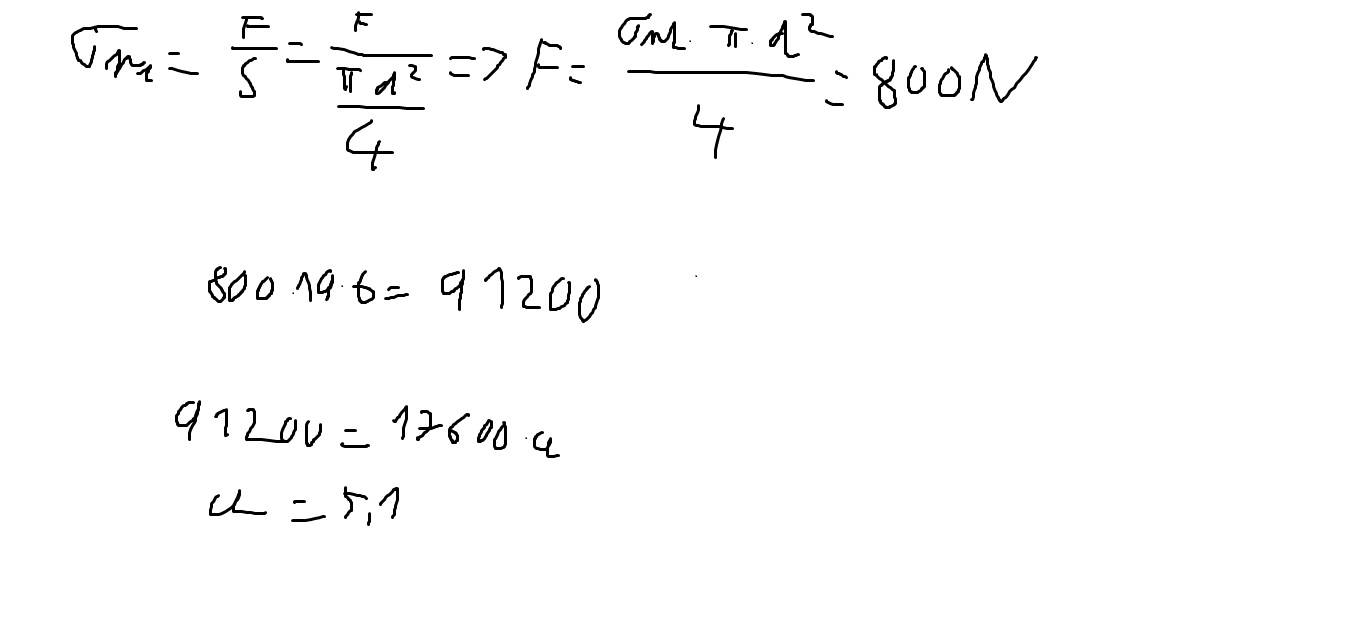 σm1 = F/S = F/(πd²/4) => F = (σm1 · π · d²)/4 = 800N
800 · 19 · 6 = 91200
91200 = 17600 · a
a = 5,1